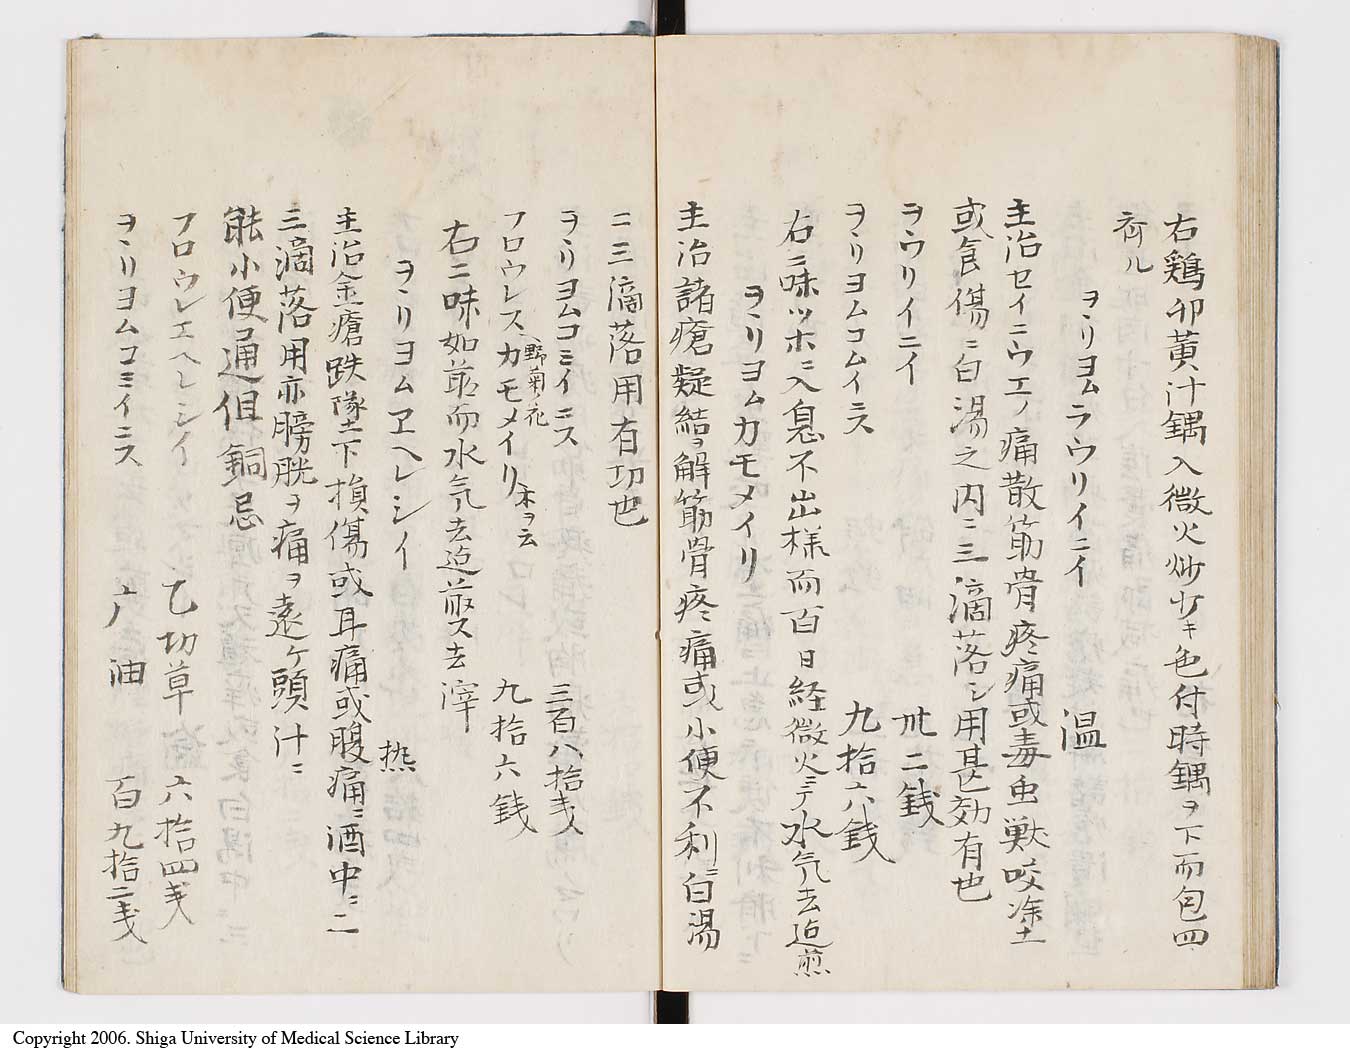 右鶏卵黄汁鍋入微火炒サキ色付時鍋ヲ下而包四
ヲヽリヨムラウリイニイ 温
主治セイニウエノ痛散筋骨疼痛或毒虫獣咬塗
或食傷ニ白湯之内ニ三滴落シ用甚効有也
ラウリイニイ 卅二銭
ヲヽリヨムコムイニス 九拾六銭
右二味ツホニ入息不出様而百日経微火ニテ水気去迠煎
ヲヽリヨムカモメイリ
主治諸瘡疑結ヲ解筋骨疼痛或小便不利ニ白湯
二三滴落用有功也
ヲヽリヨムコミイニス 三百八拾戔
フロウレスカモメイリ 野菊ノ花 九拾六銭
右二味如前而水気去迠煎ス去滓
ヲヽリヨムヱヘレシイ 熱
主治金瘡跌墜下損傷或耳痛或腹痛ニ酒中ニ二
三滴落用亦膀胱ヲ痛ヲ遠ケ頭汁ニ
能小便通但銅忌
フロウレエヘレシイ 乙切草 六拾四戔
ヲヽリヨムコミイニス 油 百九拾二戔
Copyright 2006. Shiga University of Medical Science Library